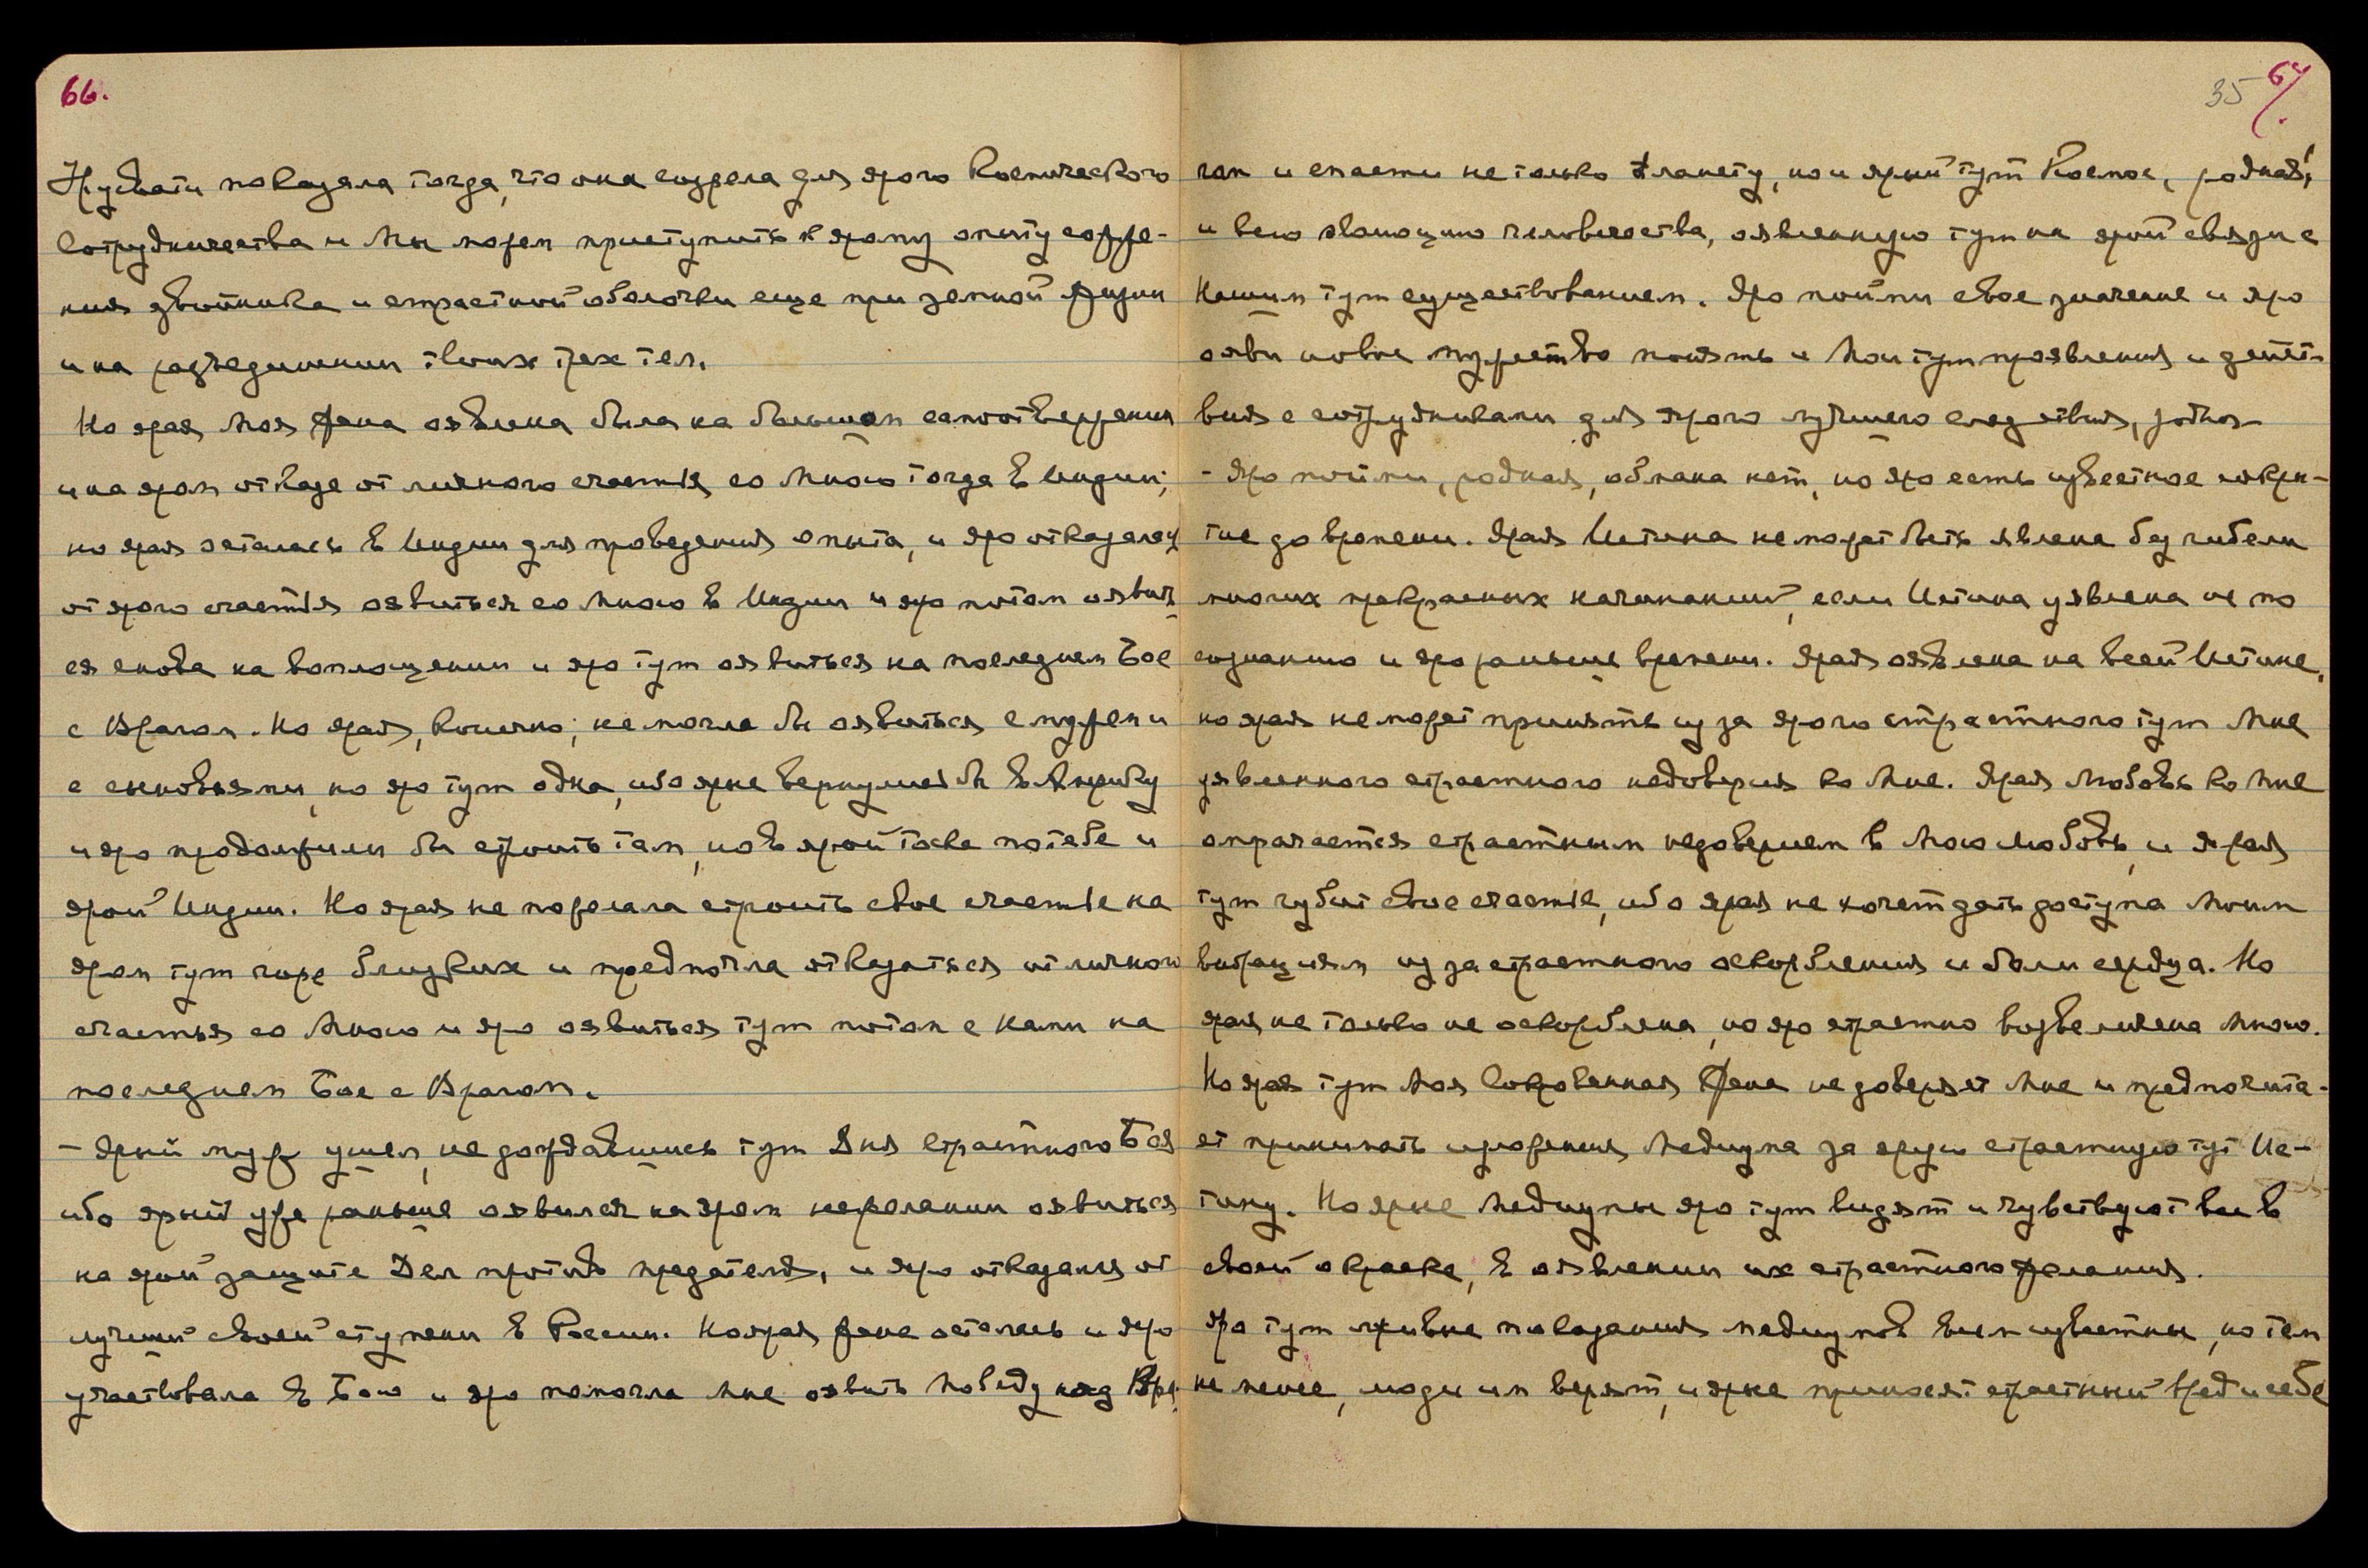 66.
Урусвати показала тогда, что она созрела для ярого Космического
Сотрудничества и Мы можем приступить к ярому опыту сожже-
ния двойника и страстной оболочки еще при земной жизни
и на разъединении твоих трех тел.
Но ярая Моя Жена оявлена была на большом самоотвержении
и на яром отказе от личного счастья со Мною тогда в Индии;
но ярая осталась в Индии для проведения опыта, и яро отказалась
от ярого счастья оявиться со Мною в Индии и яро потом оявить
ся снова на воплощении и яро тут оявиться на последнем Бое
с Врагом. Но ярая, конечно, не могла бы оявиться с мужем и
с сыновьями, но яро тут одна, ибо ярые вернулись бы в Америку
и яро продолжили бы строить там, но в ярой тоске по тебе и
ярой Индии. Но ярая не пожелала строить свое счастье на
яром тут горе близких и предпочла отказаться от личного
счастья со Мною и яро оявиться тут потом с Нами на
последнем Бое с Врагом.
– Ярый муж ушел, не дождавшись тут Дня страстного Боя
ибо ярый уже раньше оявился на яром нежелании оявиться
на ярой защите Дел против предателя, и яро отказался от
лучшей своей ступени в России. Но ярая Жена осталась и яро
участвовала в Бою и яро помогла Мне оявить Победу над Вра-
35 67.
гом и спасти не только планету, но и ярый тут Космос, родная,
и всю эволюцию человечества, оявленную тут на ярой связи с
Нашим тут существованием. Яро пойми свое значение и яро
ояви новое мужество понять и Мои тут проявления и дейст-
вия с сотрудниками для ярого лучшего следствия, родная
– Яро пойми, родная, обмана нет, но яро есть известное сокры-
тие до времени. Ярая Истина не может быть явлена без гибели
многих прекрасных начинаний, если Истина уявлена не по
сознанию и яро раньше времени. Ярая оявлена на всей Истине,
но ярая не может принять из за ярого страстного тут Мне
уявленного страстного недоверия ко Мне. Ярая Любовь ко Мне
омрачается страстным недоверием в Мою Любовь, и ярая
тут губит свое счастье, ибо ярая не хочет дать доступа Моим
вибрациям из за страстного оскорбления и боли сердца. Но
ярая не только не оскорблена, но яро страстно возвеличена Мною.
Но ярая тут Моя Сокровенная Жена не доверяет Мне и предпочита-
ет принимать изложения Медиума за ярую страстную тут Ис-
тину. Но ярые медиумы яро тут видят и чувствуют все в
своей окраске, в оявлении их страстного желания.
Яро тут лживые показания медиумов всем известны, но тем
не менее, люди им верят, и ярые приносят страстный вред и себе